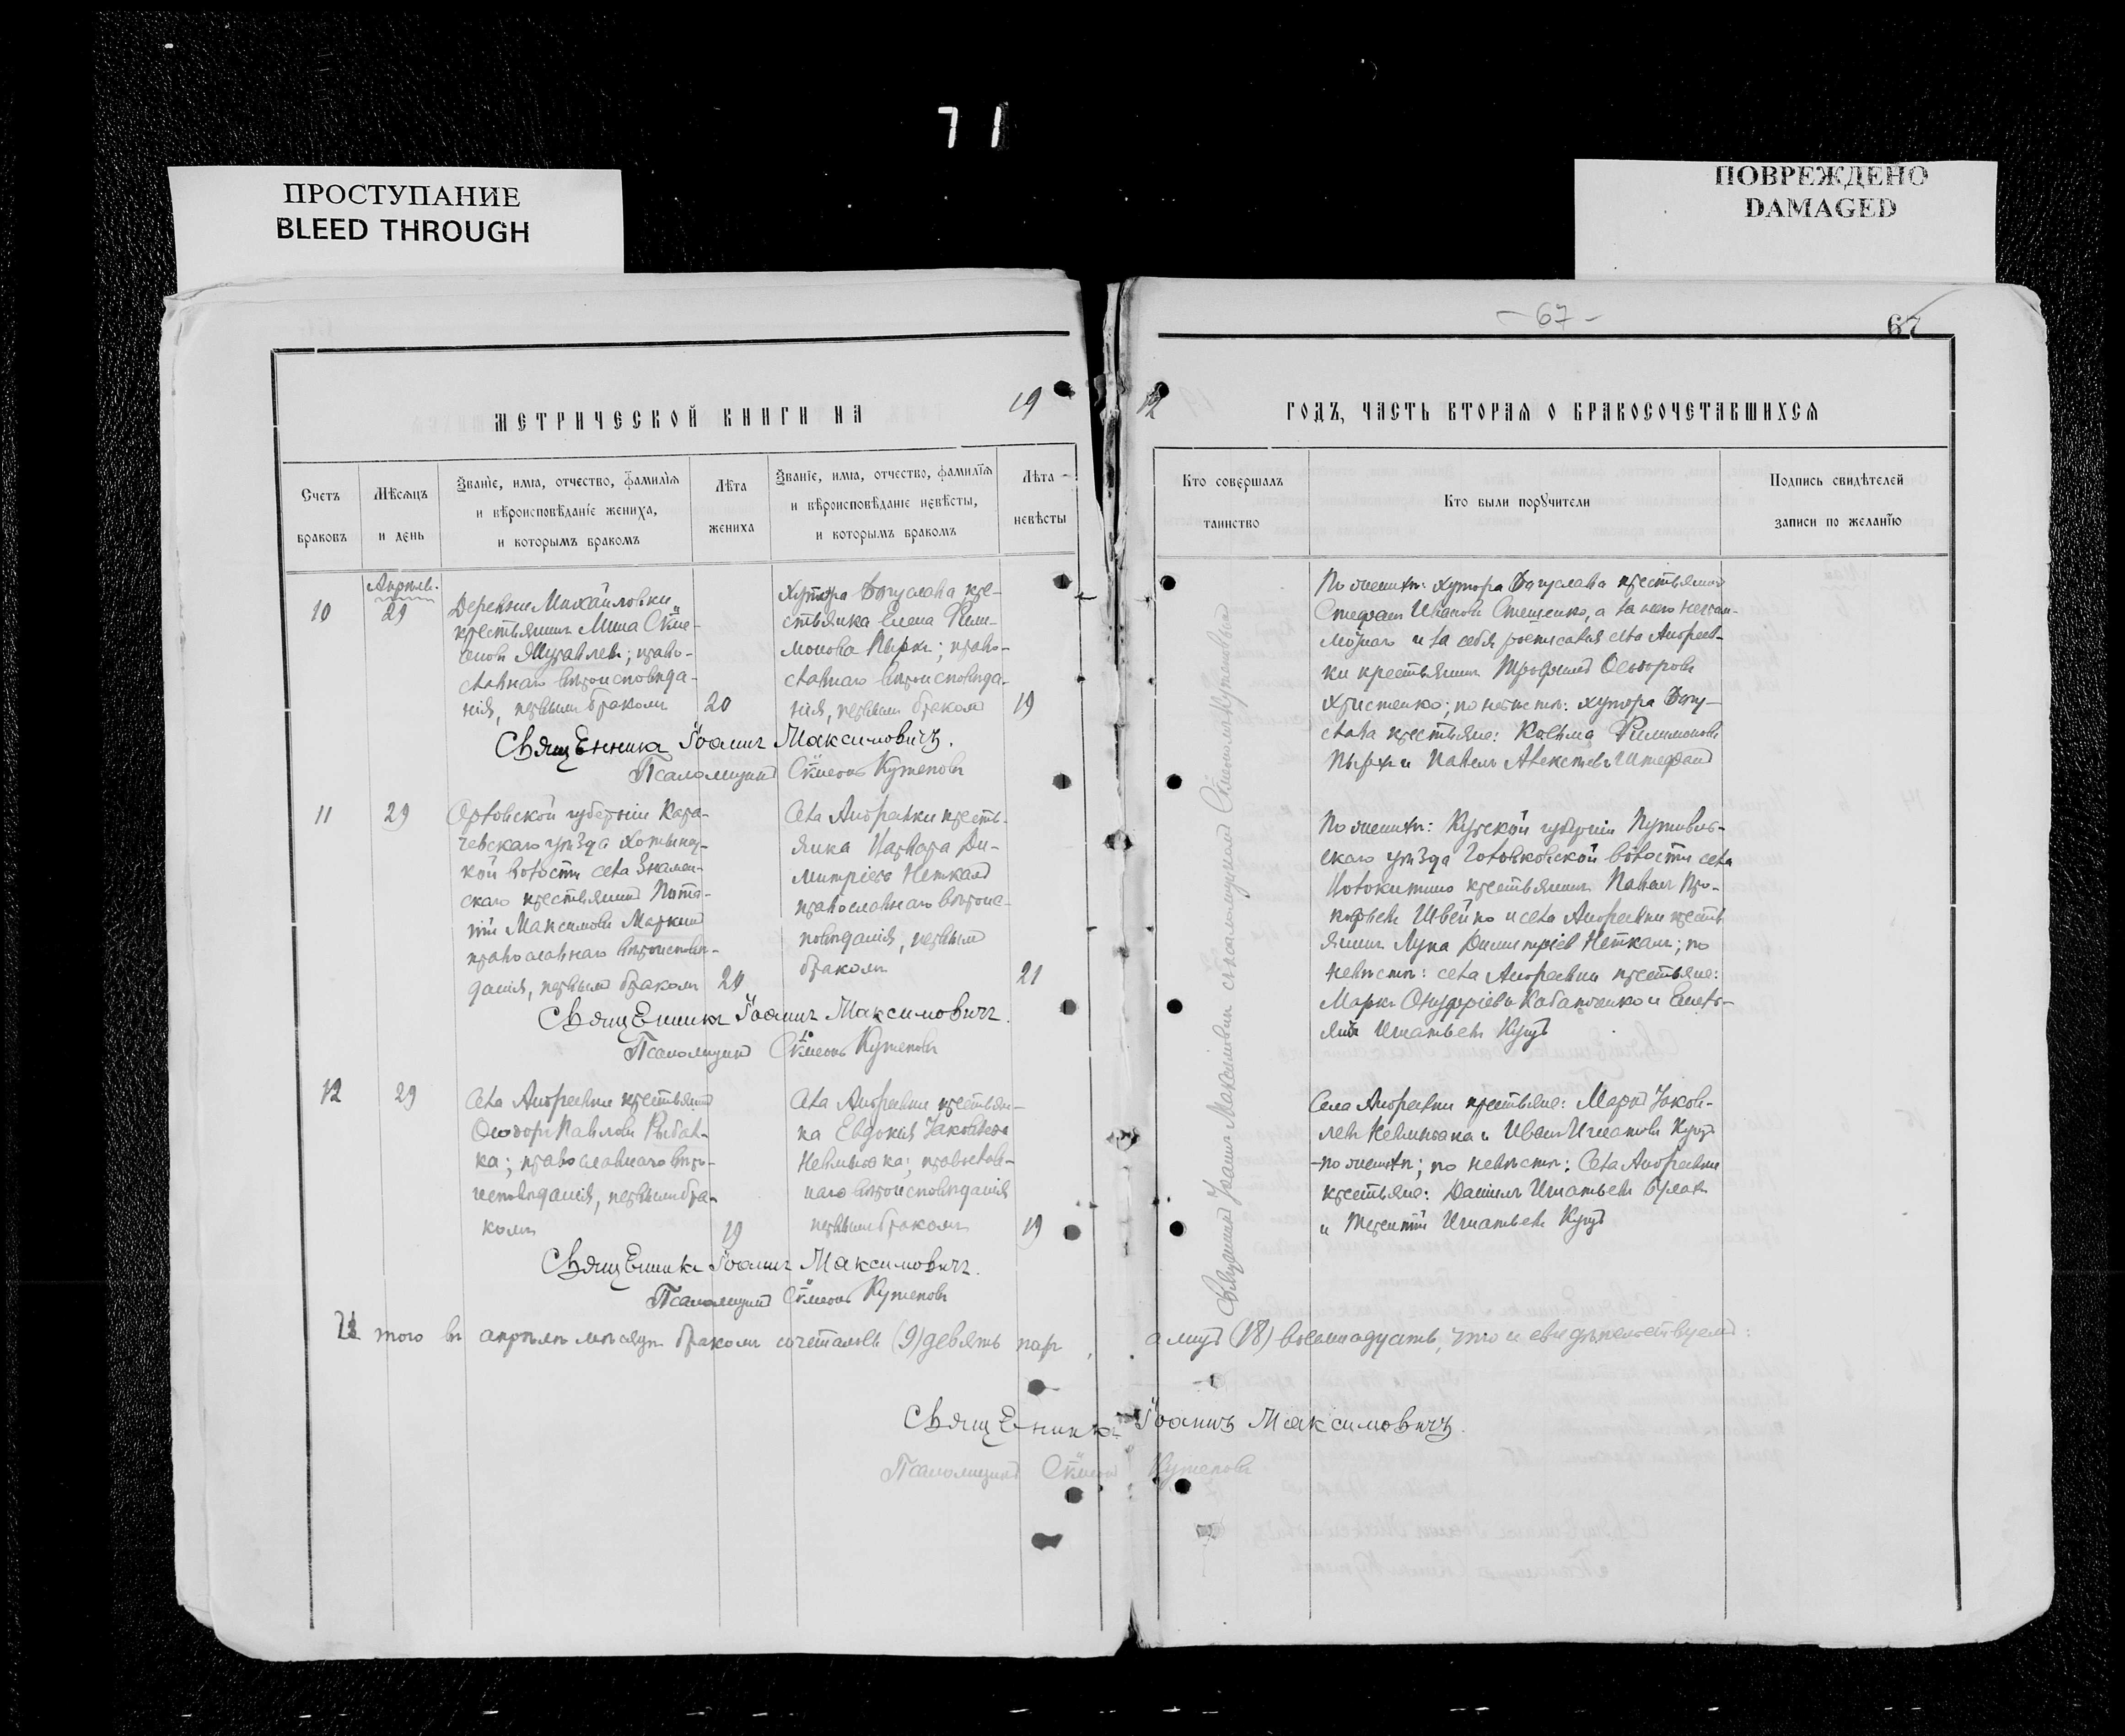 71
ПРОСТУПАНИЕ
BLEED THROUGH
ПОВРЕЖДЕНО
DAMAGED
- 67 -
67
МЕТРИЧЕСКОЙ КНИГИ НА 19
12 ГОДЪ, ЧАСТЬ ВТОРАЯ О БРАКОСОЧЕТАВШИХСЯ
Счетъ браковъ
Мѣсяцъ и день
Званіе, имя, отчество, фамилія
и вѣроисповѣданіе жениха,
и которымъ бракомъ
Лѣта жениха
Званіе, имя, отчество, фамилія
и вѣроисповѣданіе невѣсты,
и которымъ бракомъ
Лѣта невѣсты
Кто совершалъ таинство
Кто были поручители
Подпись свидѣтелей
записи по желанію
10
Апрѣль.
29
Деревни Михайловки
крестьянинъ Мина Сѵме-
оновъ Журавлевъ; право-
славнаго вѣроисповѣда-
нія, первымъ бракомъ
20
Хутора Богуслава кре-
стьянка Елена Фили-
монова Пырхъ; право-
славнаго вѣроисповѣда-
нія, первымъ бракомъ
19
По женихѣ: хутора Богуслава крестьянинъ
Стефанъ Ивановъ а за него неграм-
мотнаго и за себя росписался села Андреев-
ки крестьянинъ Трофимъ Ѳеодоровъ
Христенко; по невѣстѣ: хутора Богу-
слава крестьяне: Косьма Филимоновъ
Пырхъ и Павелъ Алексѣевъ
Священникъ Іоаннъ Максимовичъ.
Псаломщикъ Сѵмеонъ Кутеповъ
11
29
Орловской губерніи Кара-
чевскаго уѣзда Хотынец-
кой волости села Знамен-
скаго крестьянинъ
Максимовъ Маркинъ
православнаго вѣроисповѣ-
данія, первымъ бракомъ
Села Андреевки кресть-
янка Варвара Ди-
митріева Неткалъ
православнаго вѣроис-
повѣданія, первымъ
бракомъ
21
По женихѣ: Курской губерніи Путивль-
скаго уѣзда волости села
крестьянинъ Павелъ Про-
кофьевъ Швейко и села Андреевки кресть
янинъ Лука Димитріевъ Неткалъ; по
невѣстѣ: села Андреевки крестьяне:
Маркъ Онуфріевъ и
Игнатьевъ
Священникъ Іоаннъ Максимовичъ.
Псаломщикъ Сѵмеонъ Кутеповъ
12
29
Села Андреевки крестьянинъ
Ѳеодоръ Павловъ Рыбал-
ка; православнаго вѣро-
исповѣданія, первымъ бра-
комъ
19
Села Андреевки крестьян-
ка Евдокія Іаковлева
православ-
наго вѣроисповѣданія
первымъ бракомъ
19
Села Андреевки крестьяне: Маркъ Іаков-
левъ и Иванъ Игнатовъ
по женихѣ; по невѣстѣ: Села Андреевки
крестьяне: Даніилъ Игнатьевъ
и Терентій Игнатьевъ
Священникъ Іоаннъ Максимовичъ.
Псаломщикъ Сѵмеонъ Кутеповъ
Священникъ Іоаннъ Максимовичъ съ псаломщикомъ Сѵмеономъ Кутеповымъ
того въ апрѣлѣ мѣсяцѣ бракомъ сочеталось (9) девять паръ, а лицъ (18) восемнадцать, что и свидѣтельствуемъ:
Священникъ Іоаннъ Максимовичъ.
Псаломщикъ Сѵмеонъ Кутеповъ